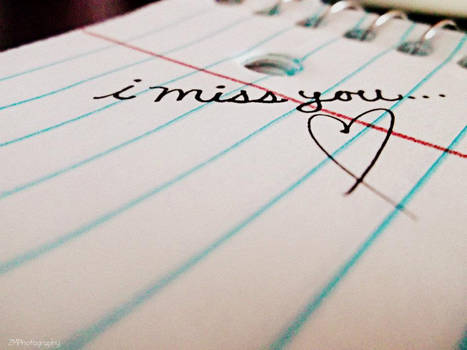 i miss you...
ZMPhotography